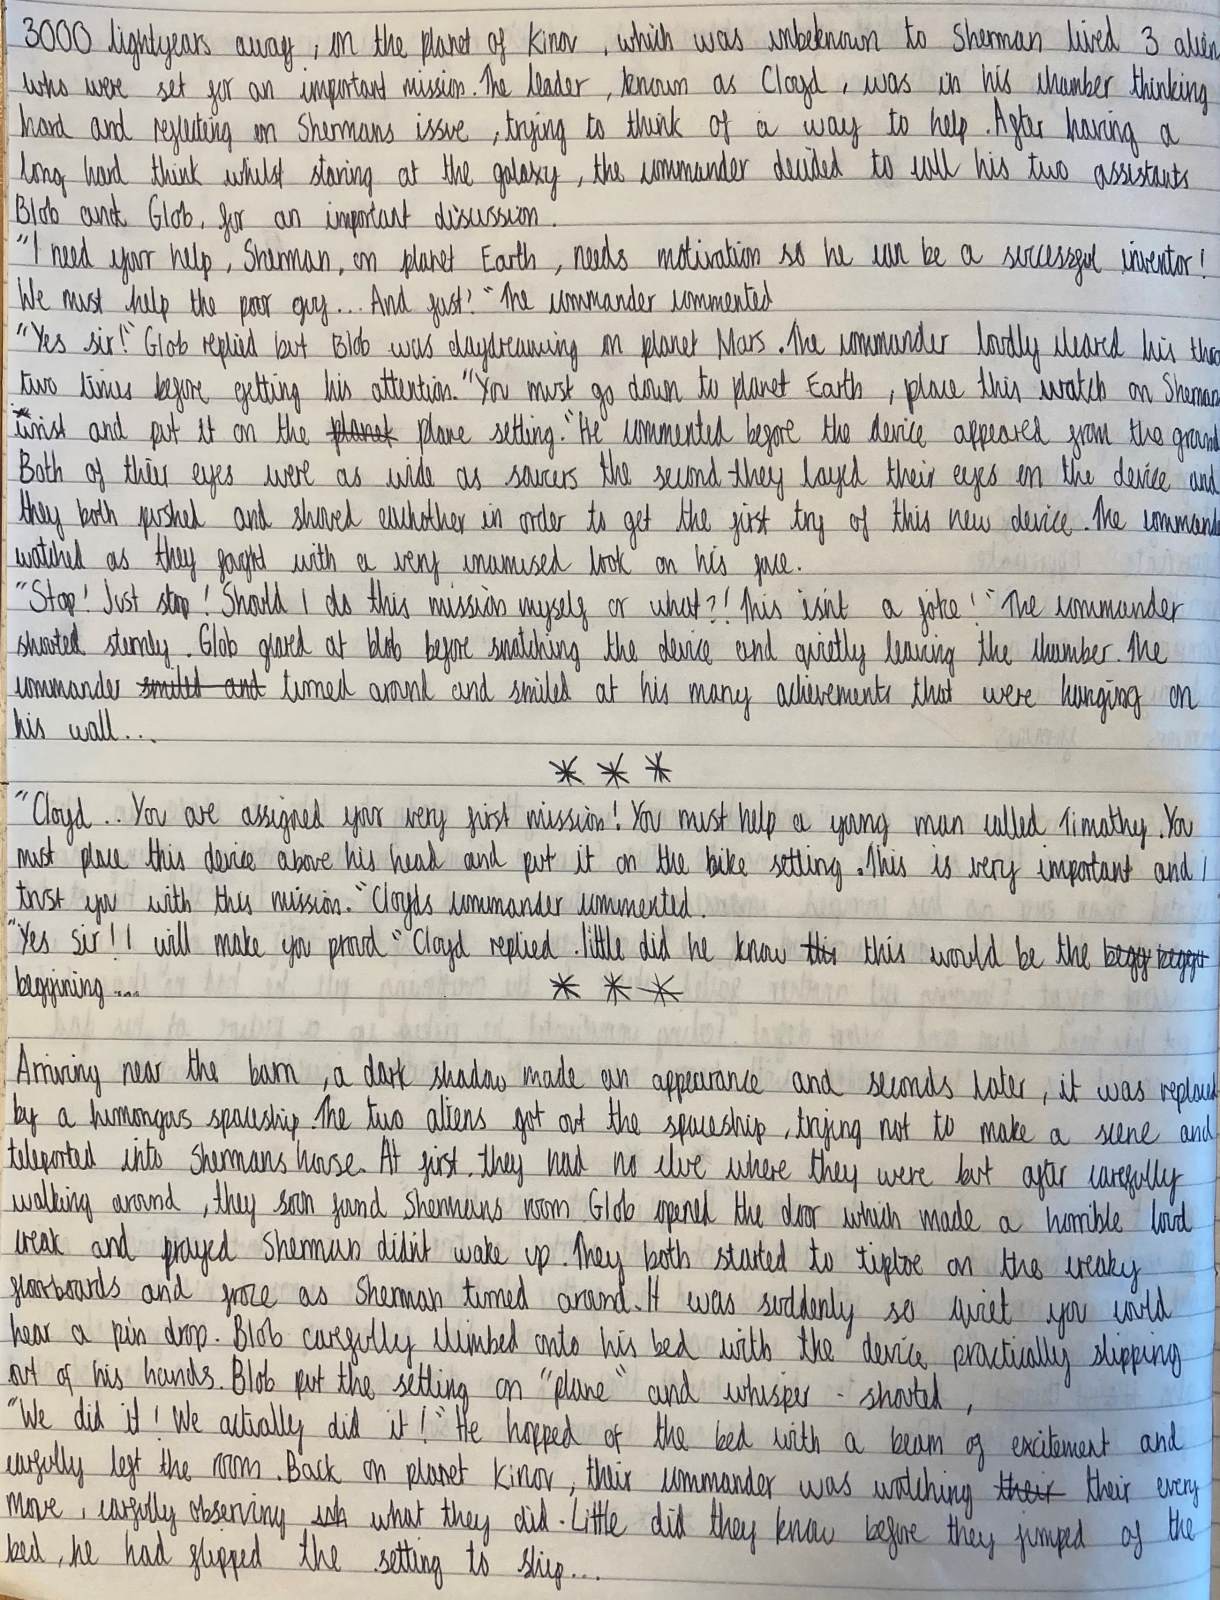 3000 lightyears away, in the planet of Kinov, which was unbeknown to Sherman lived 3 alien
who were set for an important mission. The leader, known as Cloyd, was in his chamber thinking
hard and reflecting on Shermans issue, trying to think of a way to help. After having a
long hard think whilst staring at the galaxy, the commander decided to call his two assistants
Blob and Glob, for an important discussion.
"I need your help, Sherman, on planet Earth, needs motivation so he can be a successful inventor!
We must help the poor guy... And fast!" The commander commented
"Yes sir!" Glob replied but Blob was daydreaming on planet Mars. The commander loudly cleared his thro
two times before getting his attention. "You must go down to planet Earth, place this watch on Sherman
wrist and put it on the planet plane setting." He commented before the device appeared from the ground
Both of their eyes were as wide as saucers the second they layed their eyes on the device and
they both pushed and shoved eachother in order to get the first try of this new device. The command
watched as they faught with a very unamused look on his face.
"Stop! Just stop! Should I do this mission myself or what?! This isnt a joke!" The commander
shouted sternly. Glob glared at blob before snatching the device and quietly leaving the chamber. The
commander smiled and turned around and smiled at his many achievements that were hanging on
his wall...
* * *
"Cloyd.. You are assigned your very first mission! You must help a young man called Timathy. You
must place this device above his head and put it on the bike setting. This is very important and I
trust you with this mission." Cloyds commander commented.
"Yes Sir! I will make you proud" Cloyd replied. little did he know this this would be the
beggining...
* * *
Arriving near the barn, a dark shadow made an appearance and seconds later, it was replaced
by a humongous spaceship. The two aliens got out the spaceship, trying not to make a scene and
teleported into Shermans house. At first, they had no clue where they were but after carefully
walking around, they soon found Shermans room. Glob opened the door which made a horrible loud
creak and prayed Sherman didn't wake up. They both started to tiptoe on the creaky
floorboards and froze as Sherman turned around. It was suddenly so quiet you could
hear a pin drop. Blob carefully climbed onto his bed with the device practically slipping
out of his hands. Blob put the setting on "plane" and whisper - shouted,
"We did it! We actually did it!" He hopped of the bed with a beam of excitement and
carefully left the room. Back on planet Kinov, their commander was watching their their every
move, carfully observing what they did. Little did they know before they jumped of the
bed, he had flipped the setting to ship...